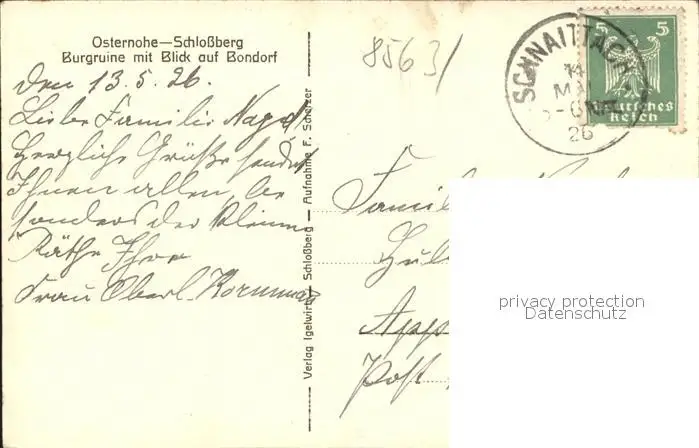 Osternohe—Schloßberg
Burgruine mit Blick auf Bondorf
Den 13.5.26.
Liebe Familie
Herzliche Grüße sendet
Ihnen allen, be
sonders der kleinen
Käthe Ihre
Frau Oberl.
Verlag Igelwirt, Schloßberg — Aufnahme F. Scherzer
85631
SCHNAITTACH
14
MAI
26
5 5
Deutsches
Reich
Famil
App
Post
privacy protection
Datenschutz